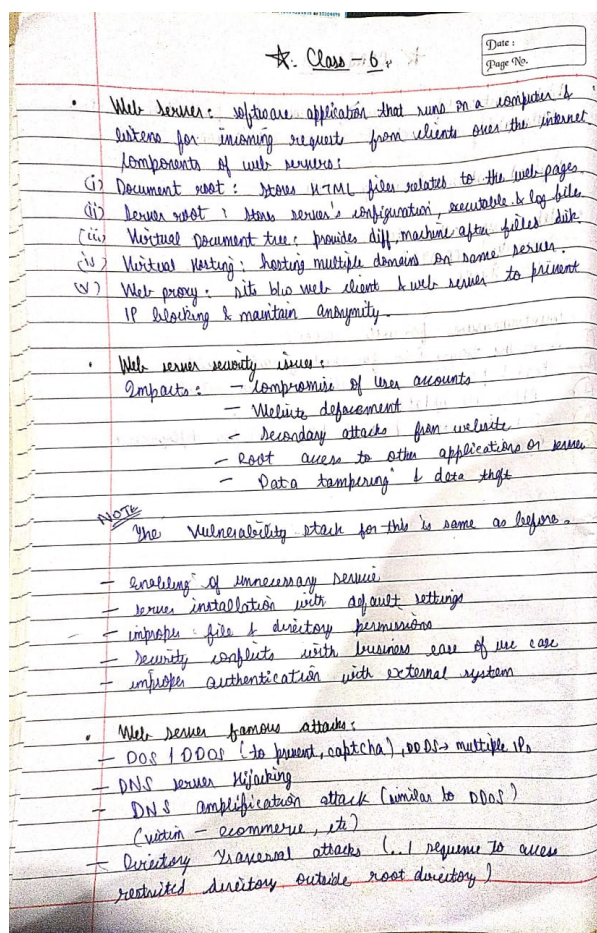 ☆. Class - 6.
Date :
Page No.
• Web server: software application that runs on a computer &
listens for incoming request from clients over the internet.
Components of web servers:
(i) Document root : stores HTML files relates to the web pages.
(ii) Server root : stores server's configuration, executable & log files
(iii) Virtual Document tree: provides diff. machine after filles disk.
(iv) Virtual Hosting: hosting multiple domains on same server.
(v) Web proxy: sits b/w web client & web server to prevent
IP blocking & maintain anonymity.
• Web server security issues:
Impacts: - Compromise of user accounts
- Website defacement
- Secondary attacks from website
- Root access to other applications or server
- Data tampering & data theft
NOTE
The Vulnerability stack for this is same as before.
- enabling of unnecessary service
- server installation with default settings
- improper file & directory permissions
- Security conflicts with business ease of use case
- improper authentication with external system
• Web server famous attacks:
- DOS / DDOS (to prevent, captcha), DDOS → multiple IPs
- DNS server Hijacking
- DNS amplification attack (similar to DDOS)
(victim - ecommerce, etc)
- Directory Traversal attacks (../ sequence to access
restricted directory outside root directory)